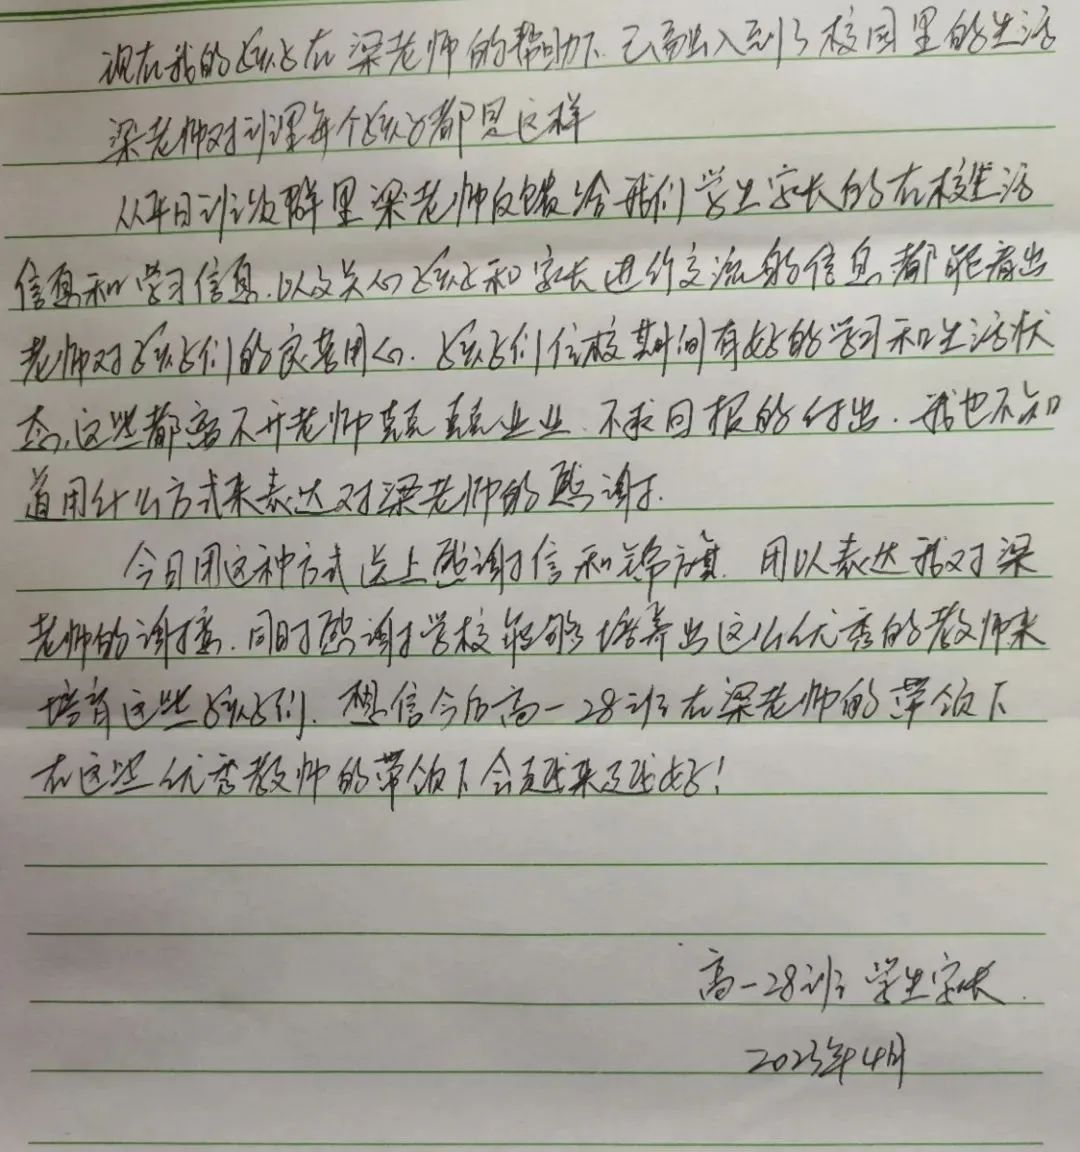 现在我的孩子在梁老师的帮助下已融入到了校园里的生活
梁老师对班里每个孩子都是这样
从平日班级群里梁老师反馈给我们学生家长的在校生活
信息和学习信息.以及关心孩子和家长进行交流的信息都能看出
老师对孩子们的良苦用心.孩子们住校期间有好的学习和生活状
态,这些都离不开老师兢兢业业.不求回报的付出.我也不知
道用什么方式来表达对梁老师的感谢.
今日用这种方式送上感谢信和锦旗.用以表达我对梁
老师的谢意.同时感谢学校能够培养出这么优秀的教师来
培育这些孩子们.想信今后高一28班在梁老师的带领下
在这些优秀教师的带领下会越来越好!
高一28班 学生家长.
2023年4月